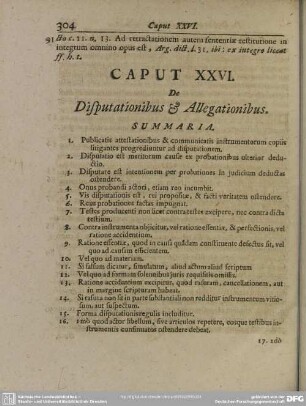 304 Caput XXVI.
91 Bo c. 21. n. 13. Ad retractationem autem sententiæ restitutione in
integrum omnino opus est, Arg. dict. l. 31. ibi: ex integro liceat
ff. h. t.
CAPUT XXVI.
De
Disputationibus & Allegationibus.
SUMMARIA.
1. Publicatis attestationibus & communicatis instrumentorum copiis
litigantes progrediuntur ad disputationem.
2. Disputatio est meritorum causæ ex probationibus ulterior dedu-
ctio.
3. Disputare est intentionem per probationes in judicium deductas
ostendere.
4. Onus probandi actori, etiam rau incumbit.
5. Vis disputationis est, rei propositæ, & facti veritatem ostendere.
6. Reus probationes factas impugnat.
7. Testes producenti non licet contra testes excipere, nec contra dicta
testium.
8. Contra instrumenta objicitur, vel ratione essentiæ, & perfectionis, vel
ratione accidentium.
9. Ratione essentiæ, quod in causis quidem consistendo defectus sit, vel
quo ad causam efficientem.
10. Vel quo ad materiam.
11. Si falsum dicatur, simulatum, aliud actum aliud scriptum
12. Vel quo ad formam solennibus juris requisitis omissis.
13. Ratione accidentium excipitur, quod rasuram, cancellationem, aut
in margine scripturam habeat.
14. Si rasura non sit in parte substantiali non redditur instrumentum vitio-
sum, aut suspectum.
15. Forma disputationis regulis includitur.
16. Imò quod actor libellum, sive articulos repetere, eosque testibus in-
strumentis confirmatos ostendere debeat.
17. Ideo